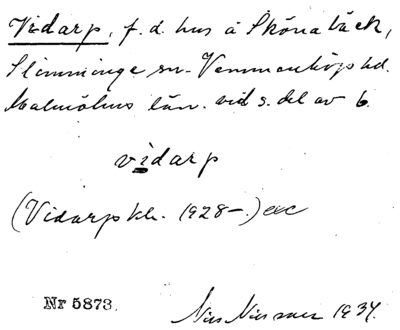 Vidarp, f.d. hus å Skönabäck,
Slimminge sn. Vemmenhögs hd.
Malmöhus län. vid s. del av b.
vidarp
(Vidarp kh. 1928-.) exc
Nr 5873.
Nils Nilsson 1934.